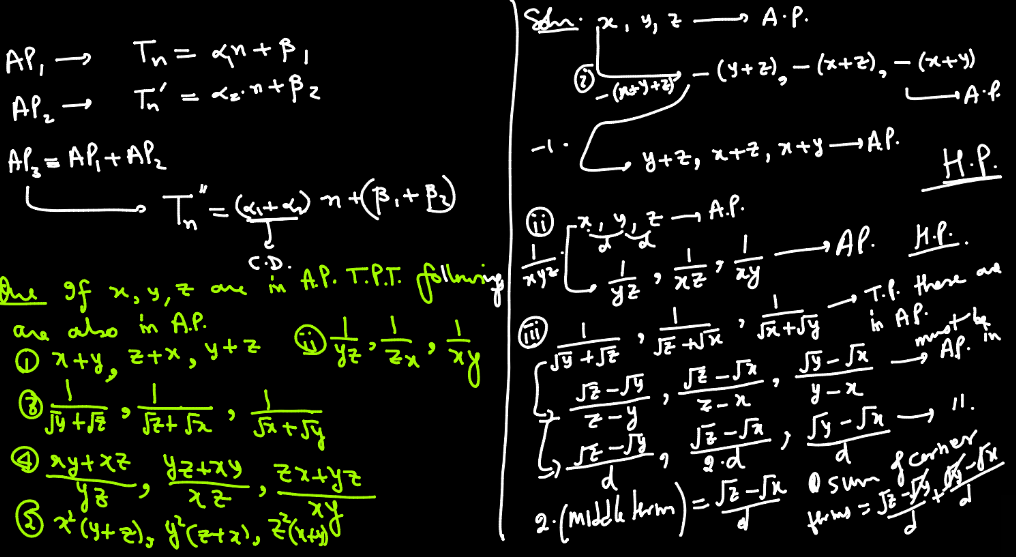 AP₁ → Tₙ = α₁n + β₁
AP₂ → Tₙ' = α₂·n + β₂
AP₃ = AP₁ + AP₂
→ Tₙ'' = (α₁ + α₂) n + (β₁ + β₂)
C.D.
Que If x, y, z are in A.P. T.P.T. following
are also in A.P.
① x+y, z+x, y+z ⓘⓘ 1/yz, 1/zx, 1/xy
③ 1/(√y+√z), 1/(√z+√x), 1/(√x+√y)
④ (xy+xz)/yz, (yz+xy)/xz, (zx+yz)/xy
⑤ x²(y+z), y²(z+x), z²(x+y)
Soln. x, y, z → A.P.
ⓘ -(x+y+z) -(y+z), -(x+z), -(x+y)
→ A.P.
-1. y+z, x+z, x+y → A.P.
H.P.
ⓘⓘ x, y, z → A.P.
d d
1/xyz. 1/yz, 1/xz, 1/xy → AP. H.P.
ⓘⓘⓘ 1/(√y+√z), 1/(√z+√x), 1/(√x+√y) → T.P. these are in AP.
(√z-√y)/(z-y), (√z-√x)/(z-x), (√y-√x)/(y-x) → must be in AP.
(√z-√y)/d, (√z-√x)/(2.d), (√y-√x)/d → 11.
2.(middle term) = (√z-√x)/d
sum of corner
terms = (√z-√y)/d + (√y-√x)/d